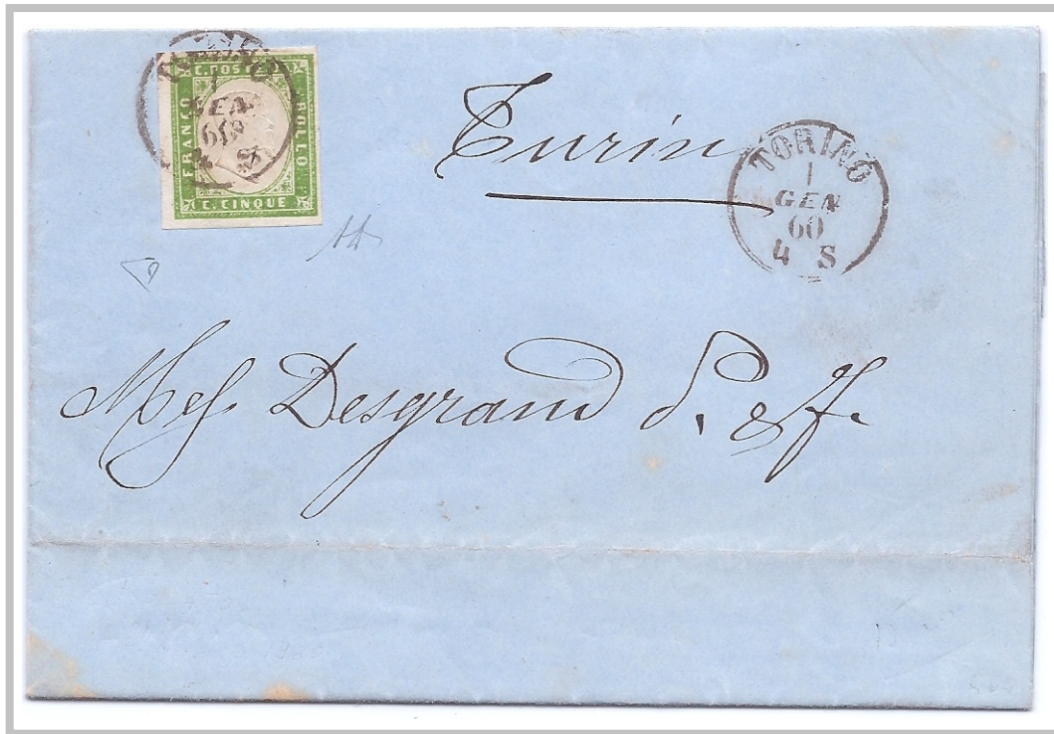 C. POS
FRANCO
BOLLO
C. CINQUE
TORINO
1
GEN
60
4 S
Turin
TORINO
1
GEN
60
4 S
Mess Desgrand P. & F.